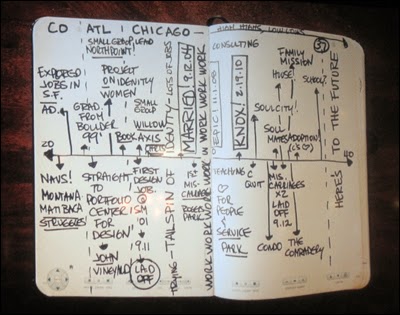 CO
ATL
CHICAGO
SMALL GROUP LEAD
NORTHPOINT!
EXPLORED
JOBS IN
S.F.
AD.
GRAD.
FROM
BOULDER
'99!
PROJECT
ON IDENTITY
WOMEN
SMALL
GROUP
WILLOW
BOOK AXIS
CHRIS
20
NAVS!
MONTANA
MATIBACA
STRUGGLES
STRAIGHT
TO
PORTFOLIO
CENTER
FOR
DESIGN
JOHN
VINEYARD
FIRST
DESIGN
JOB
@
ISM
'01
9.11
LAID
OFF
TRYING-TAILSPIN OF IDENTITY-LOTS OF JOBS
MARRIED! 9.12.04
1ST
MIS-
CARRIAGE
ROGERS
PARK
WORK WORK WORK WORK WORK WORK WORK WORK
CONSULTING
EPIC! 11.1.08
KNOX! 2.19.10
FAMILY
MISSION
HOUSE!
SCHOOL?
37
SOUL CITY!
SOUL
MATES
ADOPTION!
40
TEACHING
FOR
PEOPLE
&
SERVICE
PARK
QUIT
MIS-
CARRIAGES
X2
LAID
OFF
9.12
CONDO
THE
COMPANERY
HERE'S
TO THE FUTURE